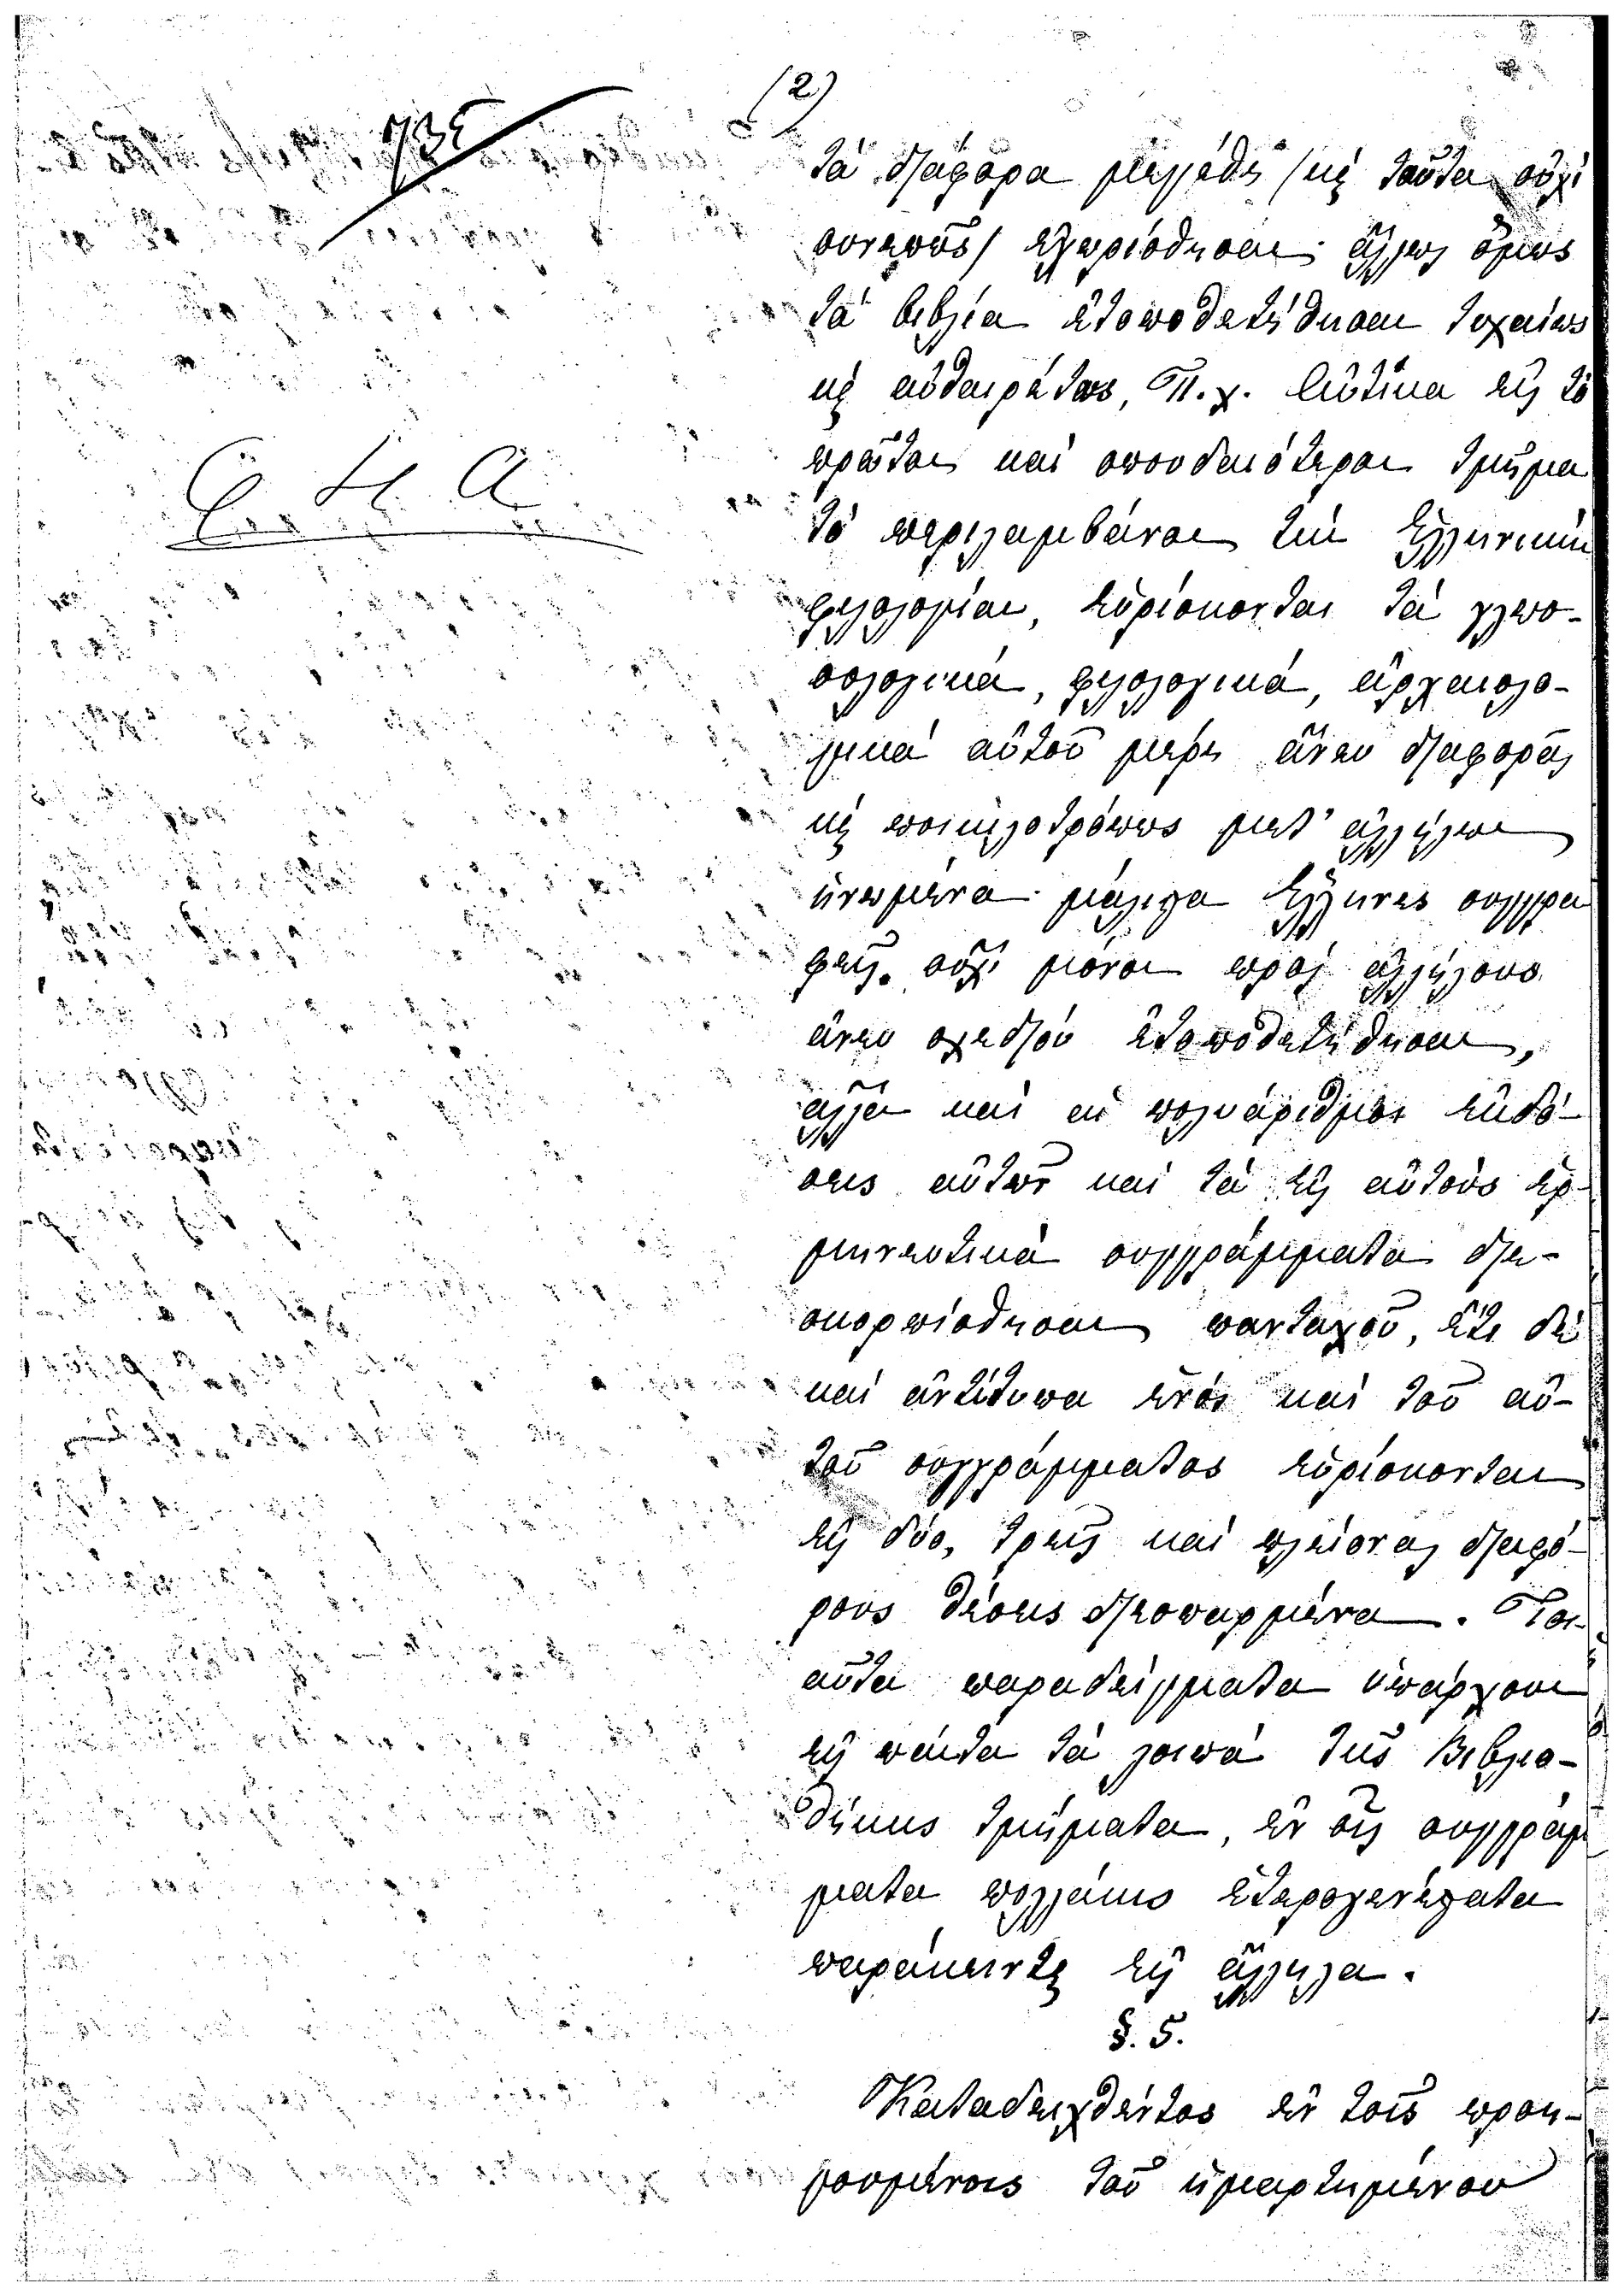 (2)
735
τὰ διάφορα μεγέθη (κỳ ταῦτα οὐχὶ
συνεπῶς) ἐχωρίσθησαν· ἄλλως ὅμως
τὰ βιβλία ἐτοποθετήθησαν τυχαίως
κỳ αὐθαιρέτως, Π.χ. Αὐτίκα εἰς τὸ
πρῶτον καὶ σπουδαιότερον τμῆμα
τὸ περιλαμβάνον τὴν Ἑλληνικὴν
φιλολογίαν, εὑρίσκονται τὰ γλωσ-
σολογικά, φιλολογικά, ἀρχαιολο-
γικὰ αὐτοῦ μέρη ἄνευ διαφορᾶς
κỳ ποικιλοτρόπως μετ' ἀλλήλων
ἡνωμένα· μάλιστα Ἕλληνες συγγρα
φεῖς οὐχὶ μόνον πρὸς ἀλλήλους
ἄνευ σχεδίου ἐτοποθετήθησαν,
ἀλλὰ καὶ αἱ πολυάριθμοι ἐκδό-
σεις αὐτῶν καὶ τὰ εἰς αὐτοὺς ἑρ-
μηνευτικὰ συγγράμματα διε-
σκορπίσθησαν πανταχοῦ, ἔτι δὲ
καὶ ἀντίτυπα ἑνὸς καὶ τοῦ αὐ-
τοῦ συγγράμματος εὑρίσκονται
εἰς δύο, τρεῖς καὶ πλείονας διαφό-
ρους θέσεις διεσπαρμένα. Τοι-
αῦτα παραδείγματα ὑπάρχουν
εἰς πάντα τὰ λοιπὰ τῆς Βιβλιο-
θήκης τμήματα, ἐν οἷς συγγράμ
ματα πολλάκις ἑτερογενέστατα
παράκεινται εἰς ἄλληλα.
§. 5.
Καταδειχθέντος ἐν τοῖς προη-
γουμένοις τοῦ ἡμαρτημένου